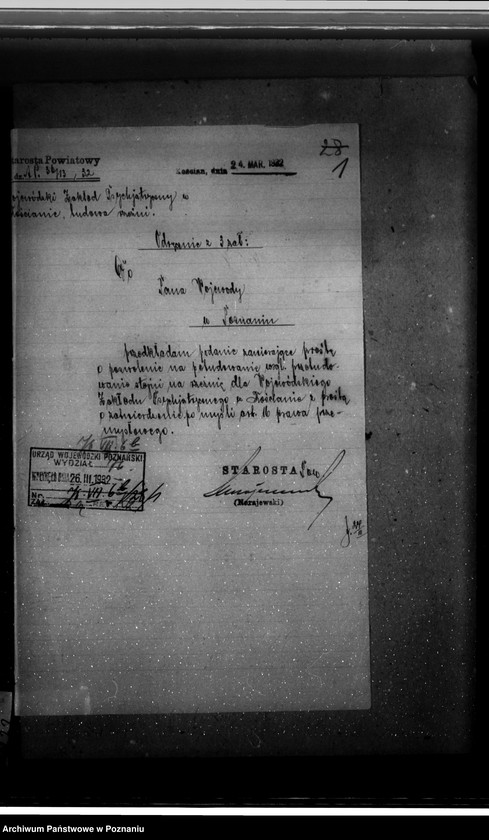 28
1
Starosta Powiatowy
Kościan, dnia 24 MAR. 1932
Wojewódzki Zakład Psychjatryczny w
Kościanie, budowa rzeźni.
Odręcznie z 3 zał:
Pana Wojewody
w Poznaniu
przedkładam podanie zawierające prośbę
o pozwolenie na pobudowanie wzgl. przebudo-
wanie stajni na rzeźnię dla Wojewódzkiego
Zakładu Psychjatrycznego w Kościanie z prośbą
o zatwierdzenie po myśli art. 16 prawa prze-
mysłowego.
URZĄD WOJEWÓDZKI POZNAŃSKI
WYDZIAŁ
26. III. 1932
No
Zał.
STAROSTA
(Morajewski)
Archiwum Państwowe w Poznaniu